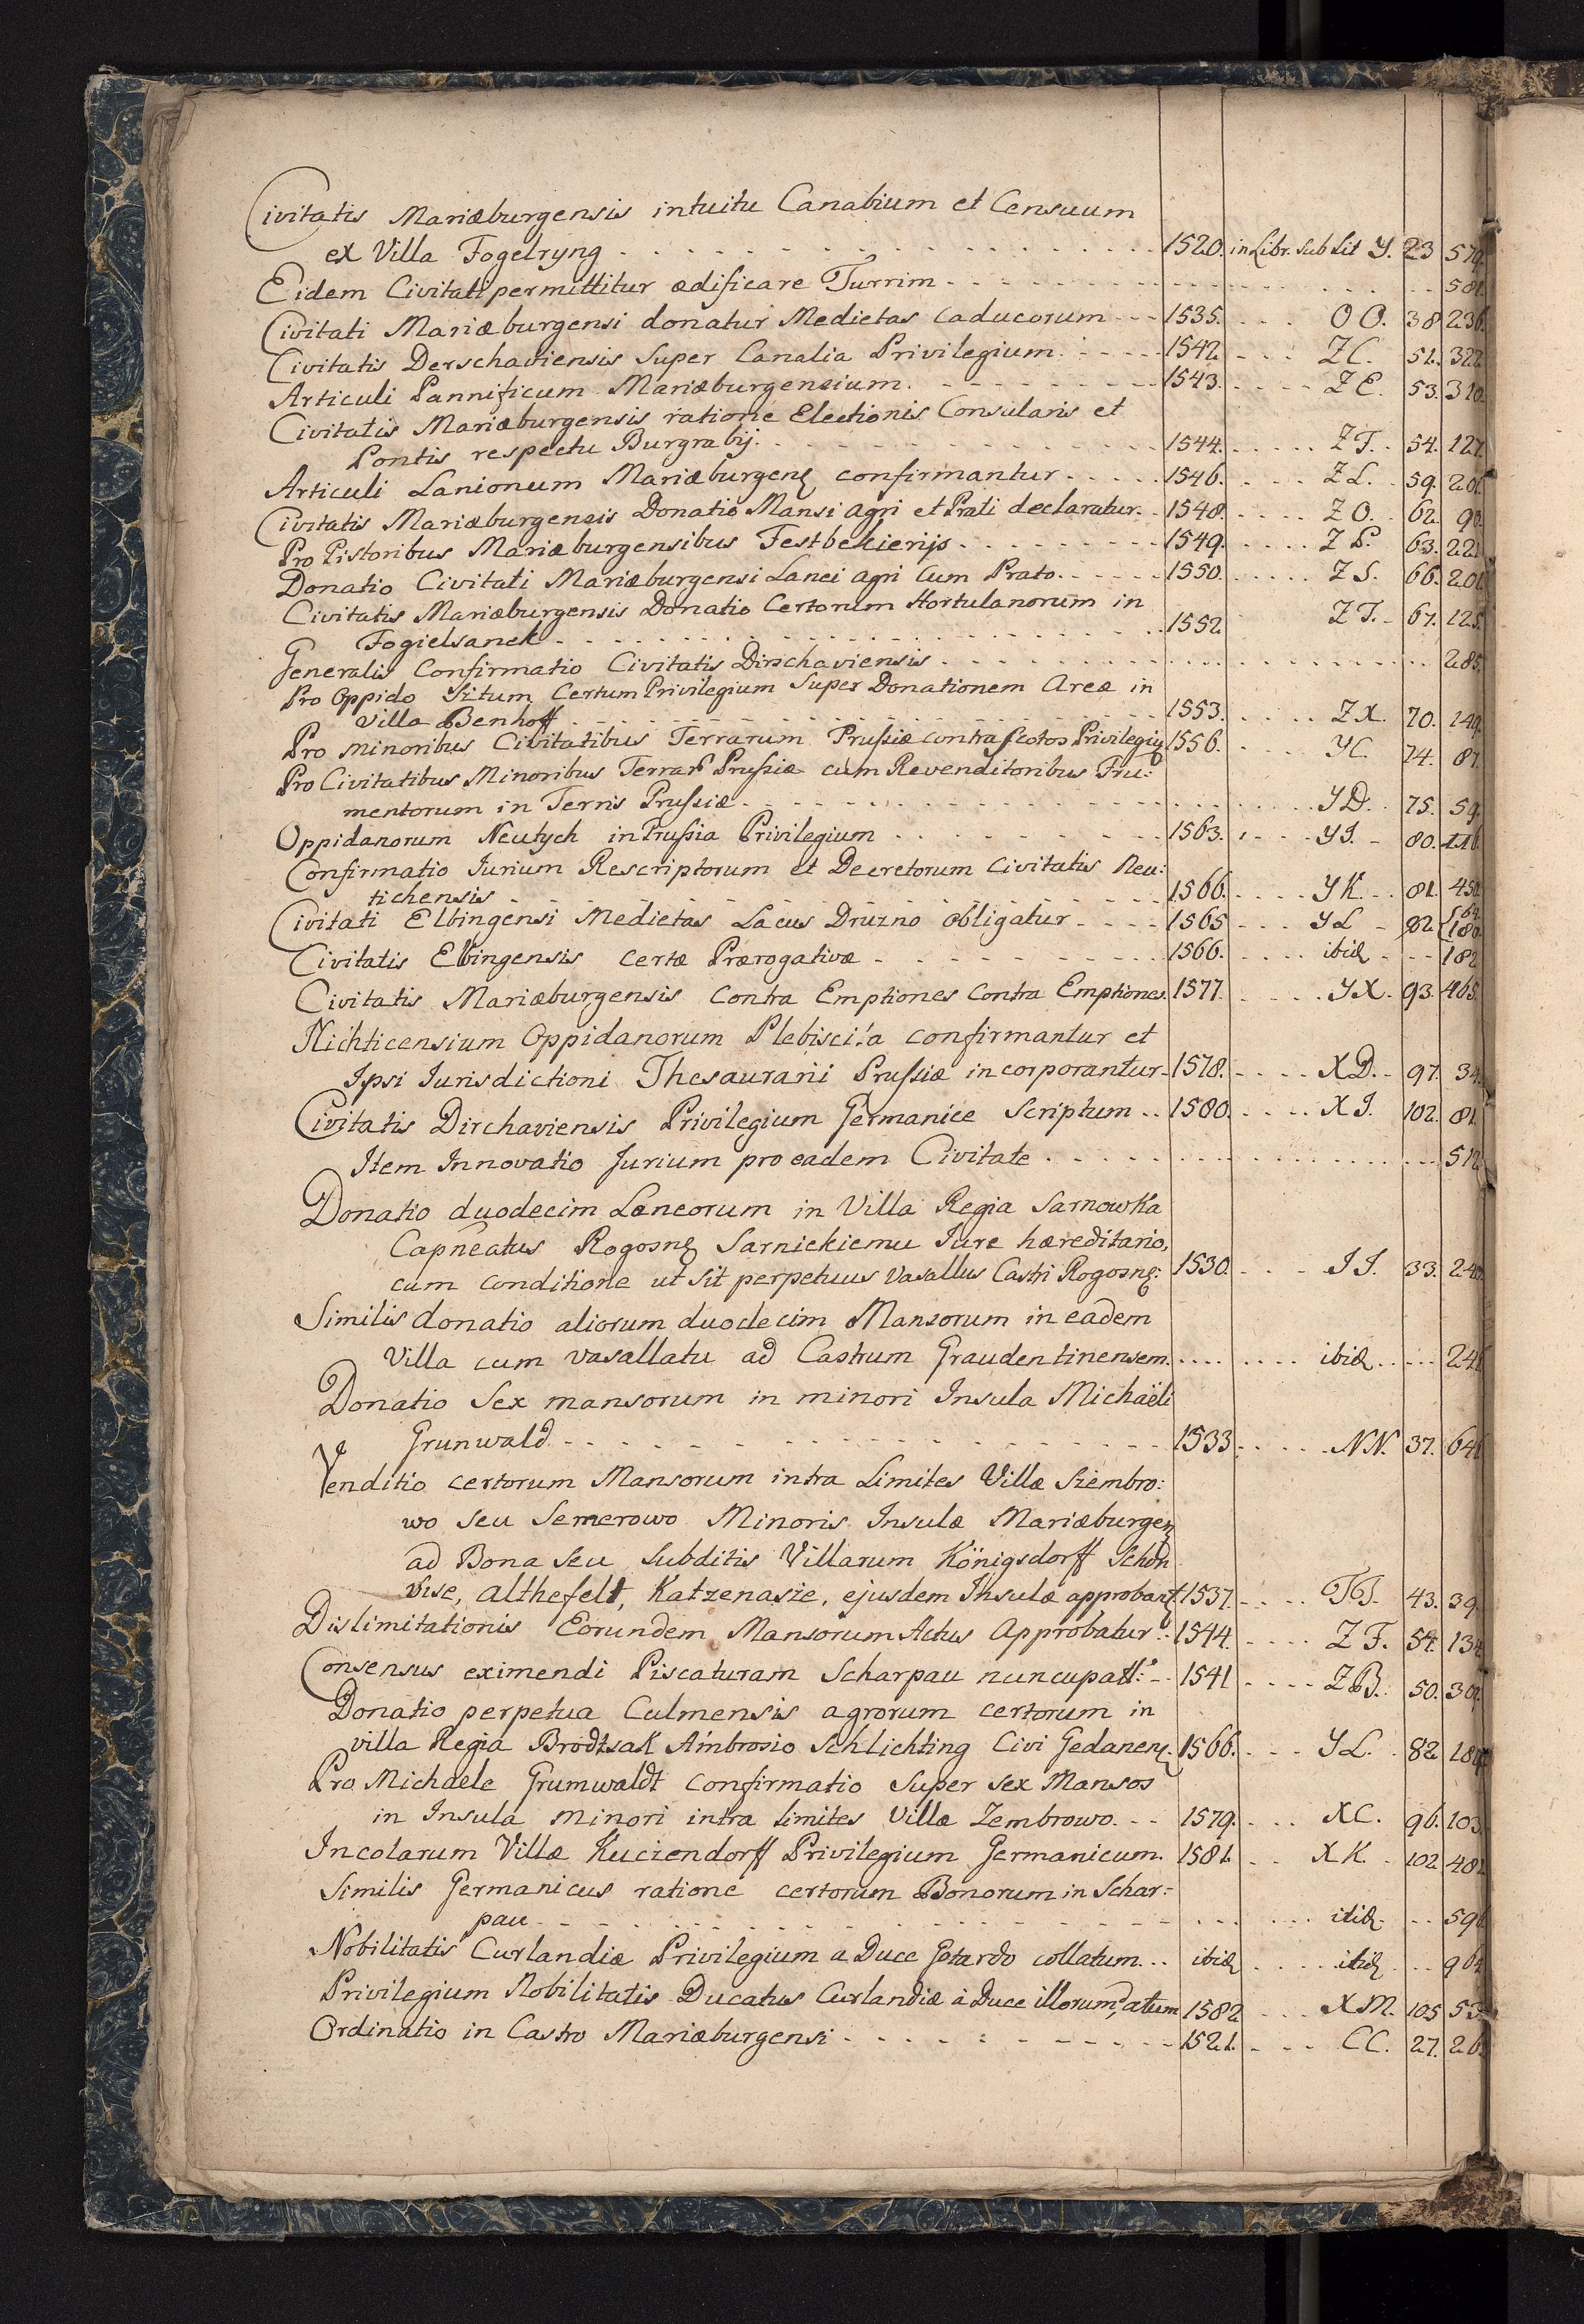 Civitatis Mariæburgensis intuitu Canabium et Censuum
ex Villa Fogelryng 1520. in Libr. Sub Lit Y. 23 579.
Eidem Civitati permittitur ædificare Turrim 581.
Civitati Mariæburgensi donatur Medietas caducorum 1535. OO. 38 236.
Civitatis Derschaviensis Super Canalia Privilegium 1542 ZC. 51. 322.
Articuli Pannificum Mariæburgensium. 1543. ZE. 53. 310.
Civitatis Mariæburgensis ratione Electionis Consularis et
Pontis respectu Burgrabij. 1544. ZF. 54. 127.
Articuli Lanionum Mariæburgenȩ confirmantur 1546. ZL. 59. 201.
Civitatis Mariæburgensis Donatio Mansi agri et Prati declaratur. 1548. ZO. 62. 90.
Pro Pistoribus Mariæburgensibus Festbekierijs 1549. ZP. 63. 221.
Donatio Civitati Mariæburgensi Lanei agri Cum Prato. 1550. ZS. 66. 201.
Civitatis Mariæburgensis Donatio Certorum Hortulanorum in
Fogielsanek 1552 ZT. 67. 125.
Generalis Confirmatio Civitatis Dirschaviensis 285.
Pro Oppido Situm Certum Privilegium Super Donationem Areæ in
Villa Benhoff 1553. ZX. 70. 149.
Pro minoribus Civitatibus Terrarum Prussiæ contra Scotos Privilegiũ 1556. YC. 74. 87.
Pro Civitatibus Minoribus Terrar Prussiæ cum Revenditoribus Fru:
mentorum in Terris Prussiæ YD. 75. 59.
Oppidanorum Neutych in Prussia Privilegium 1563. YI. 80. 116.
Confirmatio Iurium Rescriptorum et Decretorum Civitatis Neu:
tichensis 1566. YK. 81. 450.
Civitati Elbingensi Medietas Lacus Druzno obligatur 1565 YL 82 {64. 180.
Civitatis Elbingensis certæ Prærogativæ 1566. ibiđ 182
Civitatis Mariæburgensis Contra Emptiones Contra Emptiones. 1577. YX. 93. 465.
Nichticensium Oppidanorum Plebiscita confirmantur et
Ipsi Iurisdictioni Thesaurarii Prussiæ incorporantur 1578. XD. 97. 34.
Civitatis Dirchaviensis Privilegium Germanice Scriptum 1580. XI. 102. 81.
Item Innovatio Jurium pro eadem Civitate 512.
Donatio duodecim Laneorum in Villa Regia Sarnowka
Capneatus Rogosnȩ Sarnickiemu Iure hæreditario,
cum conditione ut sit perpetuus Vasallus Castri Rogosnȩ: 1530. II. 33. 240.
Similis donatio aliorum duodecim Mansorum in eadem
Villa cum vasallatu ad Castrum Graudentinensem. ibiđ 241
Donatio Sex mansorum in minori Insula Michaëli
Grunwald 1533. NN. 37. 641
Venditio certorum Mansorum intra Limites Villæ Szembro:
wo seu Semerowo Minoris Insulæ Mariæburgen
ad Bona seu Subditis Villarum Königsdorff Schön
vise, Althefelt, Katzenasze, ejusdem Insulæ approbant 1537. TT. 43. 39.
Dislimitationis Eorundem Mansorum Actus Approbatur 1544. ZF. 54. 134
Consensus eximendi Piscaturam Scharpau nuncupatt: 1541 ZB. 50. 301.
Donatio perpetua Culmensis agrorum certorum in
villa Regia Brodtsak Ambrosio Schlichting Civi Gedanenȩ. 1566. YL. 82
Pro Michaele Grumwaldt confirmatio Super Sex Mansos
in Insula minori intra limites Villæ Zembrowo. 1579. XC. 96. 103.
Incolarum Villæ Kuczendorff Privilegium Germanicum. 1581. XK. 102. 481.
Similis Germanicus ratione certorum Bonorum in Schar:
pau ibiđ 591
Nobilitatis Curlandiæ Privilegium a Duce Gotardo collatum ibiđ ibiđ 904
Privilegium Nobilitatis Ducatus Curlandiæ à Duce illorum datum 1582 XM. 105 53
Ordinatio in Castro Mariæburgensi 1521. CC. 27. 26.